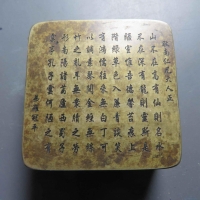 仁兄大人正
山不在高有仙則名水
不在深有龍則靈斯是
陋室惟吾德馨苔痕上
階綠草色入簾青談笑
有鴻儒往來無白丁可
以調素琴閱金經無絲
竹之亂耳無案牘之勞
形南陽諸葛廬西蜀子
雲亭孔子云何陋之有